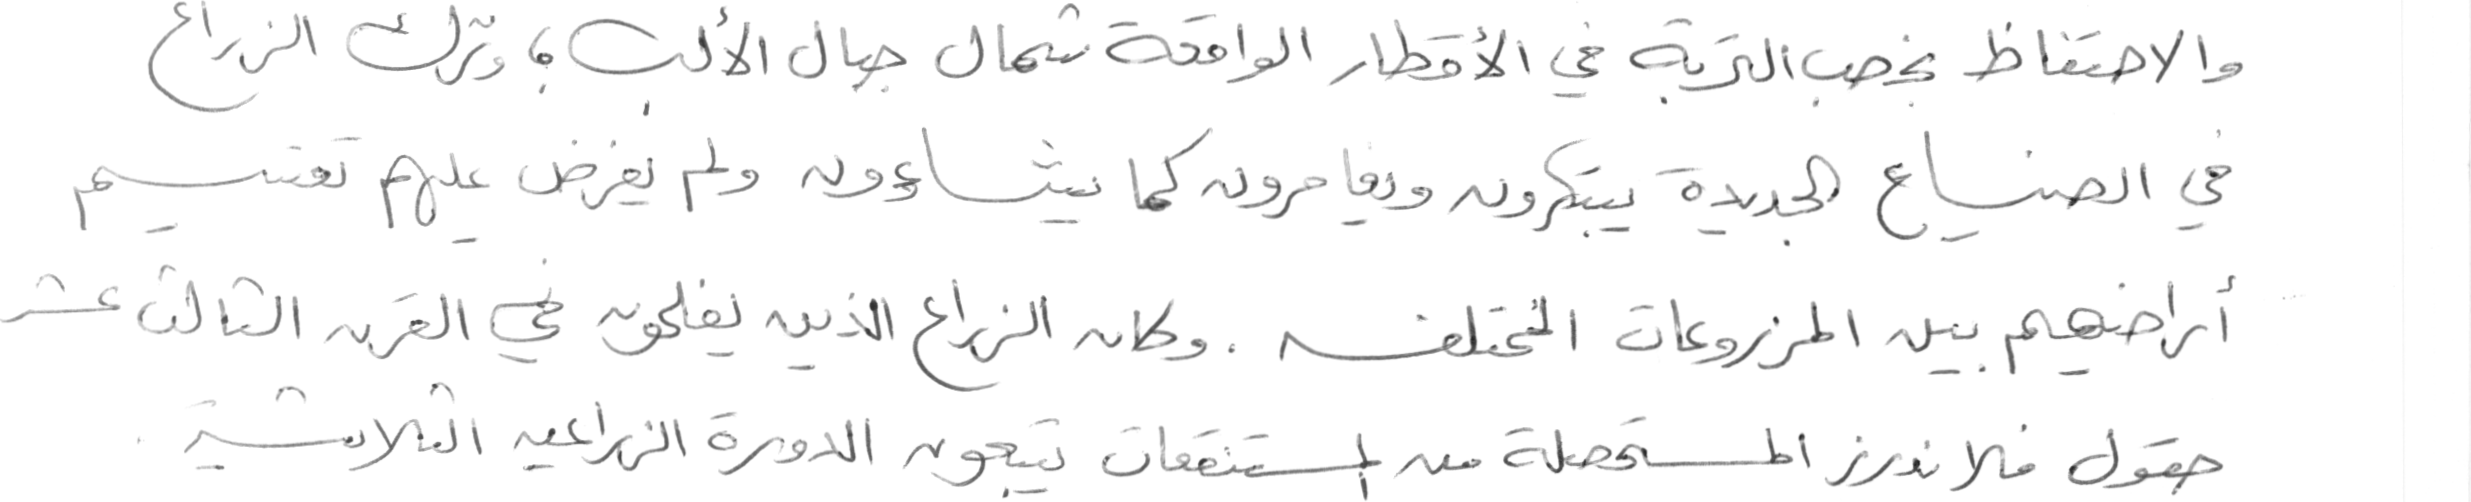 والاحتفاظ بخصب التربة في الأقطار الواقعة شمال جبال الألب؛ وترك الزراع
في الضياع الجديدة يبتكرون ويغامرون كما يشاءون ولم يفرض عليهم تقسيم
أراضيهم بين المزروعات المختلفه . وكان الزراع الذين يفلحون في القرن الثالث عشر
حقول فلاندرز المستحصلة من المستنقعات يتبعون الدورة الزراعيه الثلاثية .